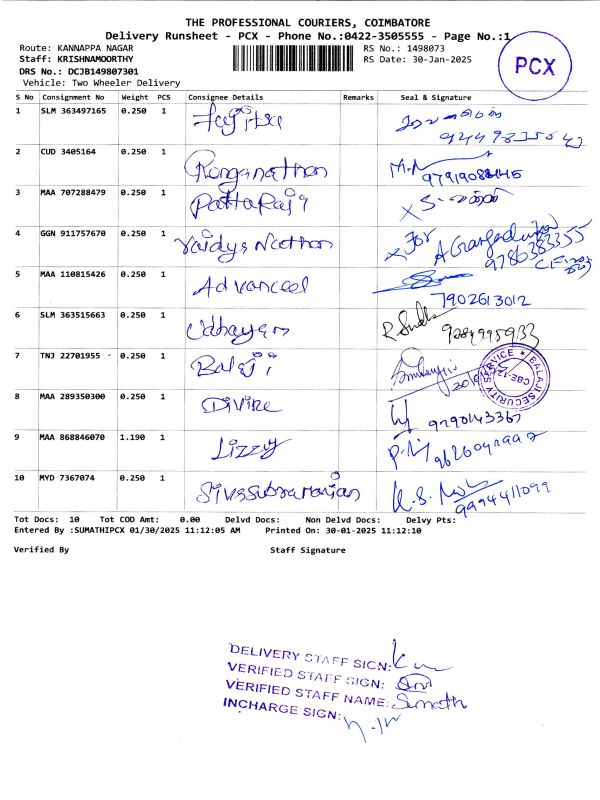 THE PROFESSIONAL COURIERS, COIMBATORE
Delivery Runsheet - PCX - Phone No.:0422-3505555 - Page No.:1
Route: KANNAPPA NAGAR
RS No.: 1498073
Staff: KRISHNAMOORTHY
RS Date: 30-Jan-2025
PCX
DRS No.: DCJB149807301
Vehicle: Two Wheeler Delivery
S No Consignment No Weight PCS Consignee Details Remarks Seal & Signature
1 SLM 363497165 0.250 1
2 CUD 3405164 0.250 1 Ranganathan
3 MAA 707288479 0.250 1 Pattaraj
4 GGN 911757670 0.250 1 Vaidyanathan For
5 MAA 110815426 0.250 1 Advanced
7902613012
6 SLM 363515663 0.250 1 Udhayam
7 TNJ 22701955 0.250 1 Balaji
BALAJI SECURITY SERVICE
CBE-12
8 MAA 289350300 0.250 1 Divine 9790143367
9 MAA 868846070 1.190 1 Lizzy
10 MYD 7367074 0.250 1 Sivasubramanian
9994411099
Tot Docs: 10 Tot COD Amt: 0.00 Delvd Docs: Non Delvd Docs: Delvy Pts:
Entered By :SUMATHIPCX 01/30/2025 11:12:05 AM Printed On: 30-01-2025 11:12:10
Verified By Staff Signature
DELIVERY STAFF SIGN:
VERIFIED STAFF SIGN:
VERIFIED STAFF NAME: Sumathi
INCHARGE SIGN: